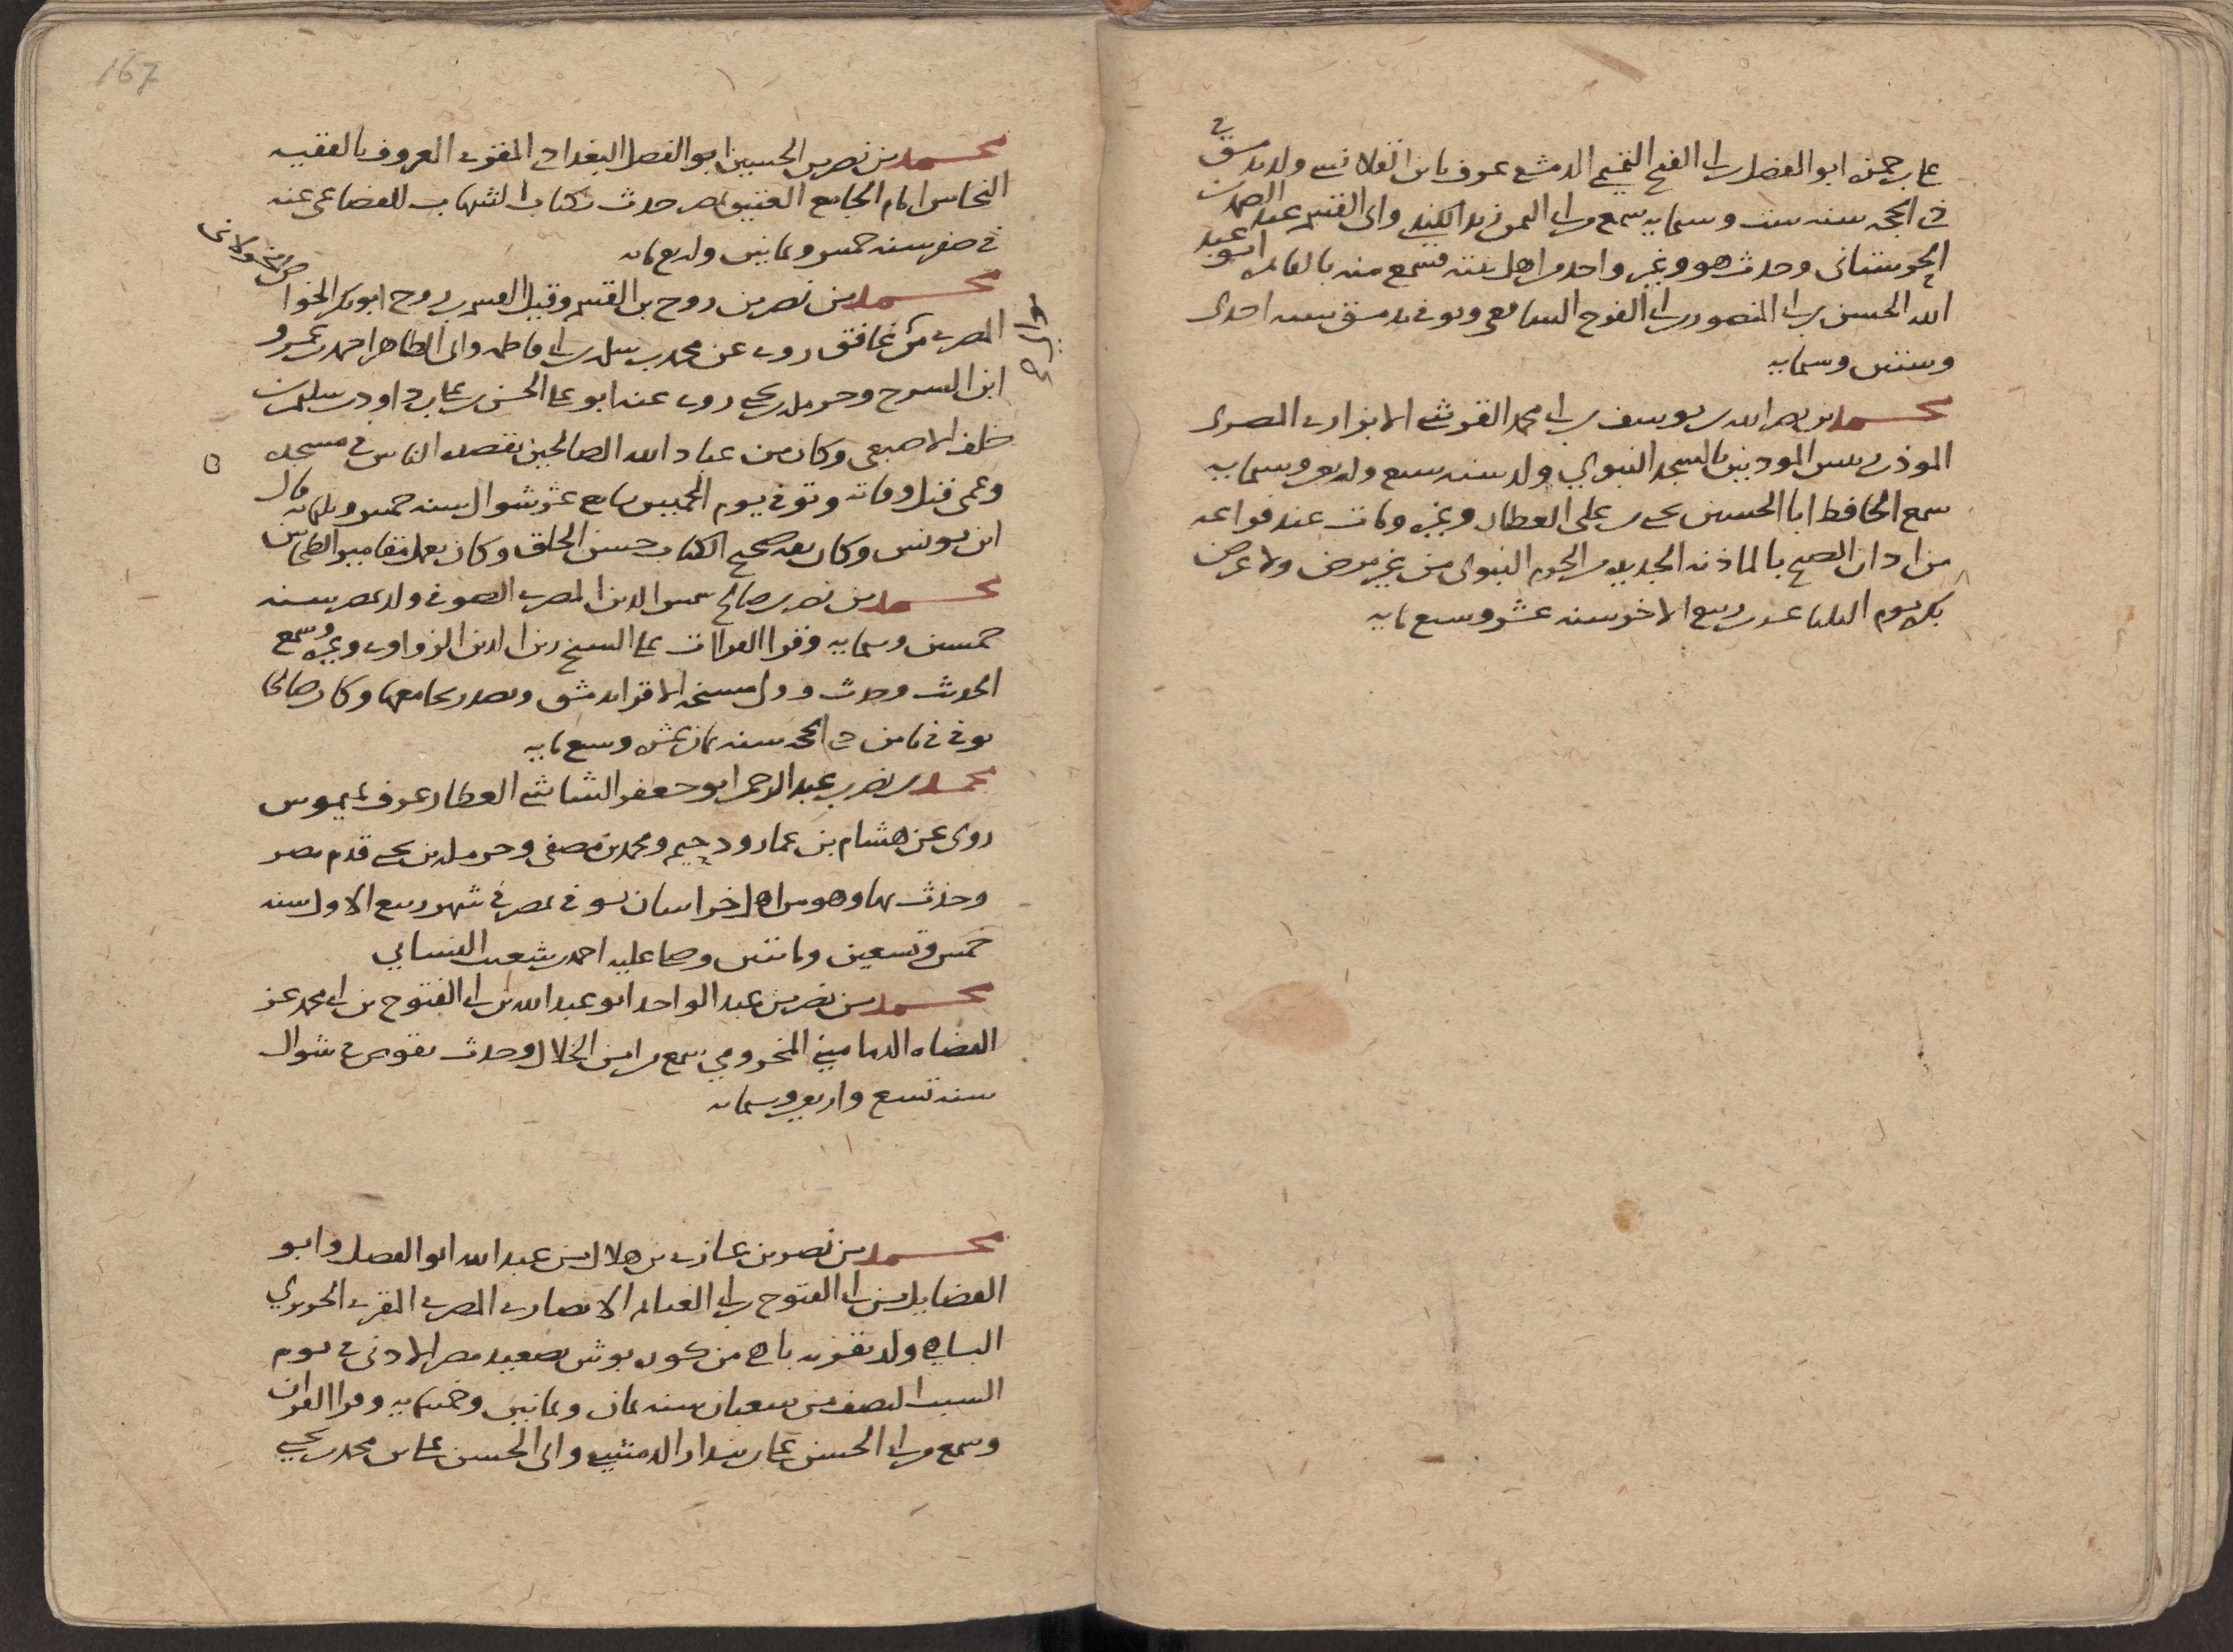 علي بن حمزه ابو الفضل بن ابي الفتح التميمي الدمشقي عرف بابن القلانسي ولد بدمشق في
ذي الحجه سنه ست وستمايه سمع من ابي اليمن زيد الكندي وابي القسم عبد الصمد بن
الحرستاني وحدث هو وغير واحد من اهل بيته فسمع منه بالقاهره ابو عبد
الله الحسن بن ابي المنصور بن ابي الفتوح السامعي وتوفي بدمشق سنه احدى
وستين وستمايه
محمد بن نصر الله بن يوسف بن ابي محمد القرشي الابزاري المصري
الموذن رييس الموذنين بالمسجد النبوي ولد سنه سبع واربعين وستمايه
سمع الحافظ ابا الحسين يحيى بن علي العطار وغيره ومات عند فراغه
من اذان الصبح بالماذنه الجديده من الحرم النبوي من غير مرض ولا عرض
بكره يوم الثلثا عشر ربيع الاخر سنه عشر وسبع مايه
167
محمد بن نصر بن الحسين ابو الفضل البغدادي المقرى المعروف بالفقيه
النحاس امام الجامع العتيق بمصر حدث بكتاب الشهاب للقضاعي عنه
في صفر سنه خمس وثمانين واربعمايه
محمد بن نصر بن روح بن القسم وقيل القسم بن روح ابو بكر الخوا
المصري من غافق روى عن محمد بن سلمه بن ابي فاطمه وابي الطاهر احمد بن عمرو
ابن السرح وحرمله بن يحيى روى عنه ابو علي الحسن بن علي بن داود بن سليمن بن
خلف الاصبعي وكان من عباد الله الصالحين يقصده الناس في مسجده
وعمي قبل وفاته وتوفي يوم الخميس سابع عشر شوال سنه خمس وثلثمايه قال
ابن يونس وكان ثقه صحيح الكتاب حسن الخلق وكان يعمل مقامير الطحاين
محمد بن نصر بن صالح شمس الدين المصري الصوفي ولد بمصر سنه
خمسين وستمايه وقرا القراات على الشيخ زين الدين الزواوي وغيره وسمع
الحديث وحدث وولي مشيخه الاقرا بدمشق وتصدر بجامعها وكان صالحا
توفي في ثامن ذي الحجه سنه ثمان عشره وسبع مايه
محمد بن نصر بن عبد الرحمن ابو جعفر الشاشي العطار عرف بميموس
روى عن هشام بن عمار ودحيم ومحمد بن مصفى وحرمله بن يحيى قدم مصر
وحدث بها وهو من اهل خراسان توفي بمصر في شهر ربيع الاول سنه
خمس وتسعين ومايتين وصلى عليه احمد بن شعيب النسايي
محمد بن نصر بن عبد الواحد ابو عبد الله بن ابي الفتوح بن ابي محمد عز
القضاه الدماميني المخزومي سمع من ابن الخلال وحدث بقوص في شوال
سنه تسع واربعين وستمايه
محمد بن نصر بن غازي بن هلال بن عبد الله ابو الفضل وابو
الفضايل بن ابي الفتوح بن ابي الغنايم الانصاري المصري المقري الحريري
ولد بقريه من كوره بوش بصعيد مصر الادنى في يوم
السبت النصف من شعبان سنه ثمان وثمانين وخمسمايه وقرا القران
وسمع من ابي الحسن علي بن الدمشقي وابي الحسن علي بن محمد بن يحيى